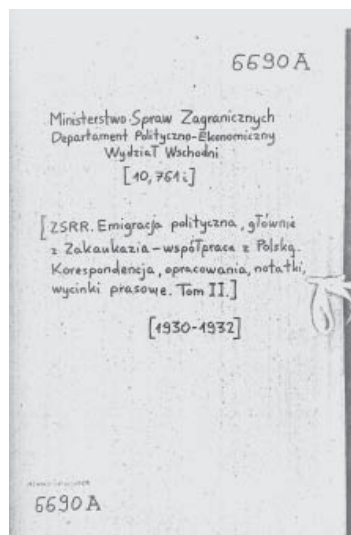 6690A
Ministerstwo Spraw Zagranicznych
Departament Polityczno-Ekonomiczny
Wydział Wschodni
[10,761i]
[ZSRR. Emigracja polityczna, głównie
z Zakaukazia – współpraca z Polską.
Korespondencja, opracowania, notatki,
wycinki prasowe. Tom II.]
[1930-1932]
6690A